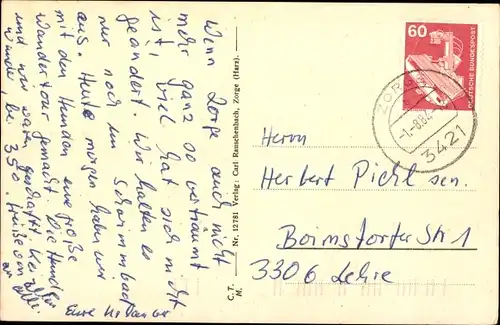 Wenn Zorge auch nicht
mehr ganz so verträumt
ist, viel hat sich nicht
geändert. Wir halten es
nur noch im Schwimmbad
aus. Heute morgen haben wir
mit den Hunden eine große
Wandertour gemacht. Die Hunde
und wir waren geschafft. Kein
Wunder, bei 35°. Grüße von
an alle.
Eure
Nr. 12781 Verlag: Carl Rauschenbach, Zorge (Harz).
C. T.
M.
60
DEUTSCHE BUNDESPOST
ZORGE
-1.-8.84
3421
Herrn
Herbert Pichl sen.
Boimstorfer Str 1
3306 Lehre